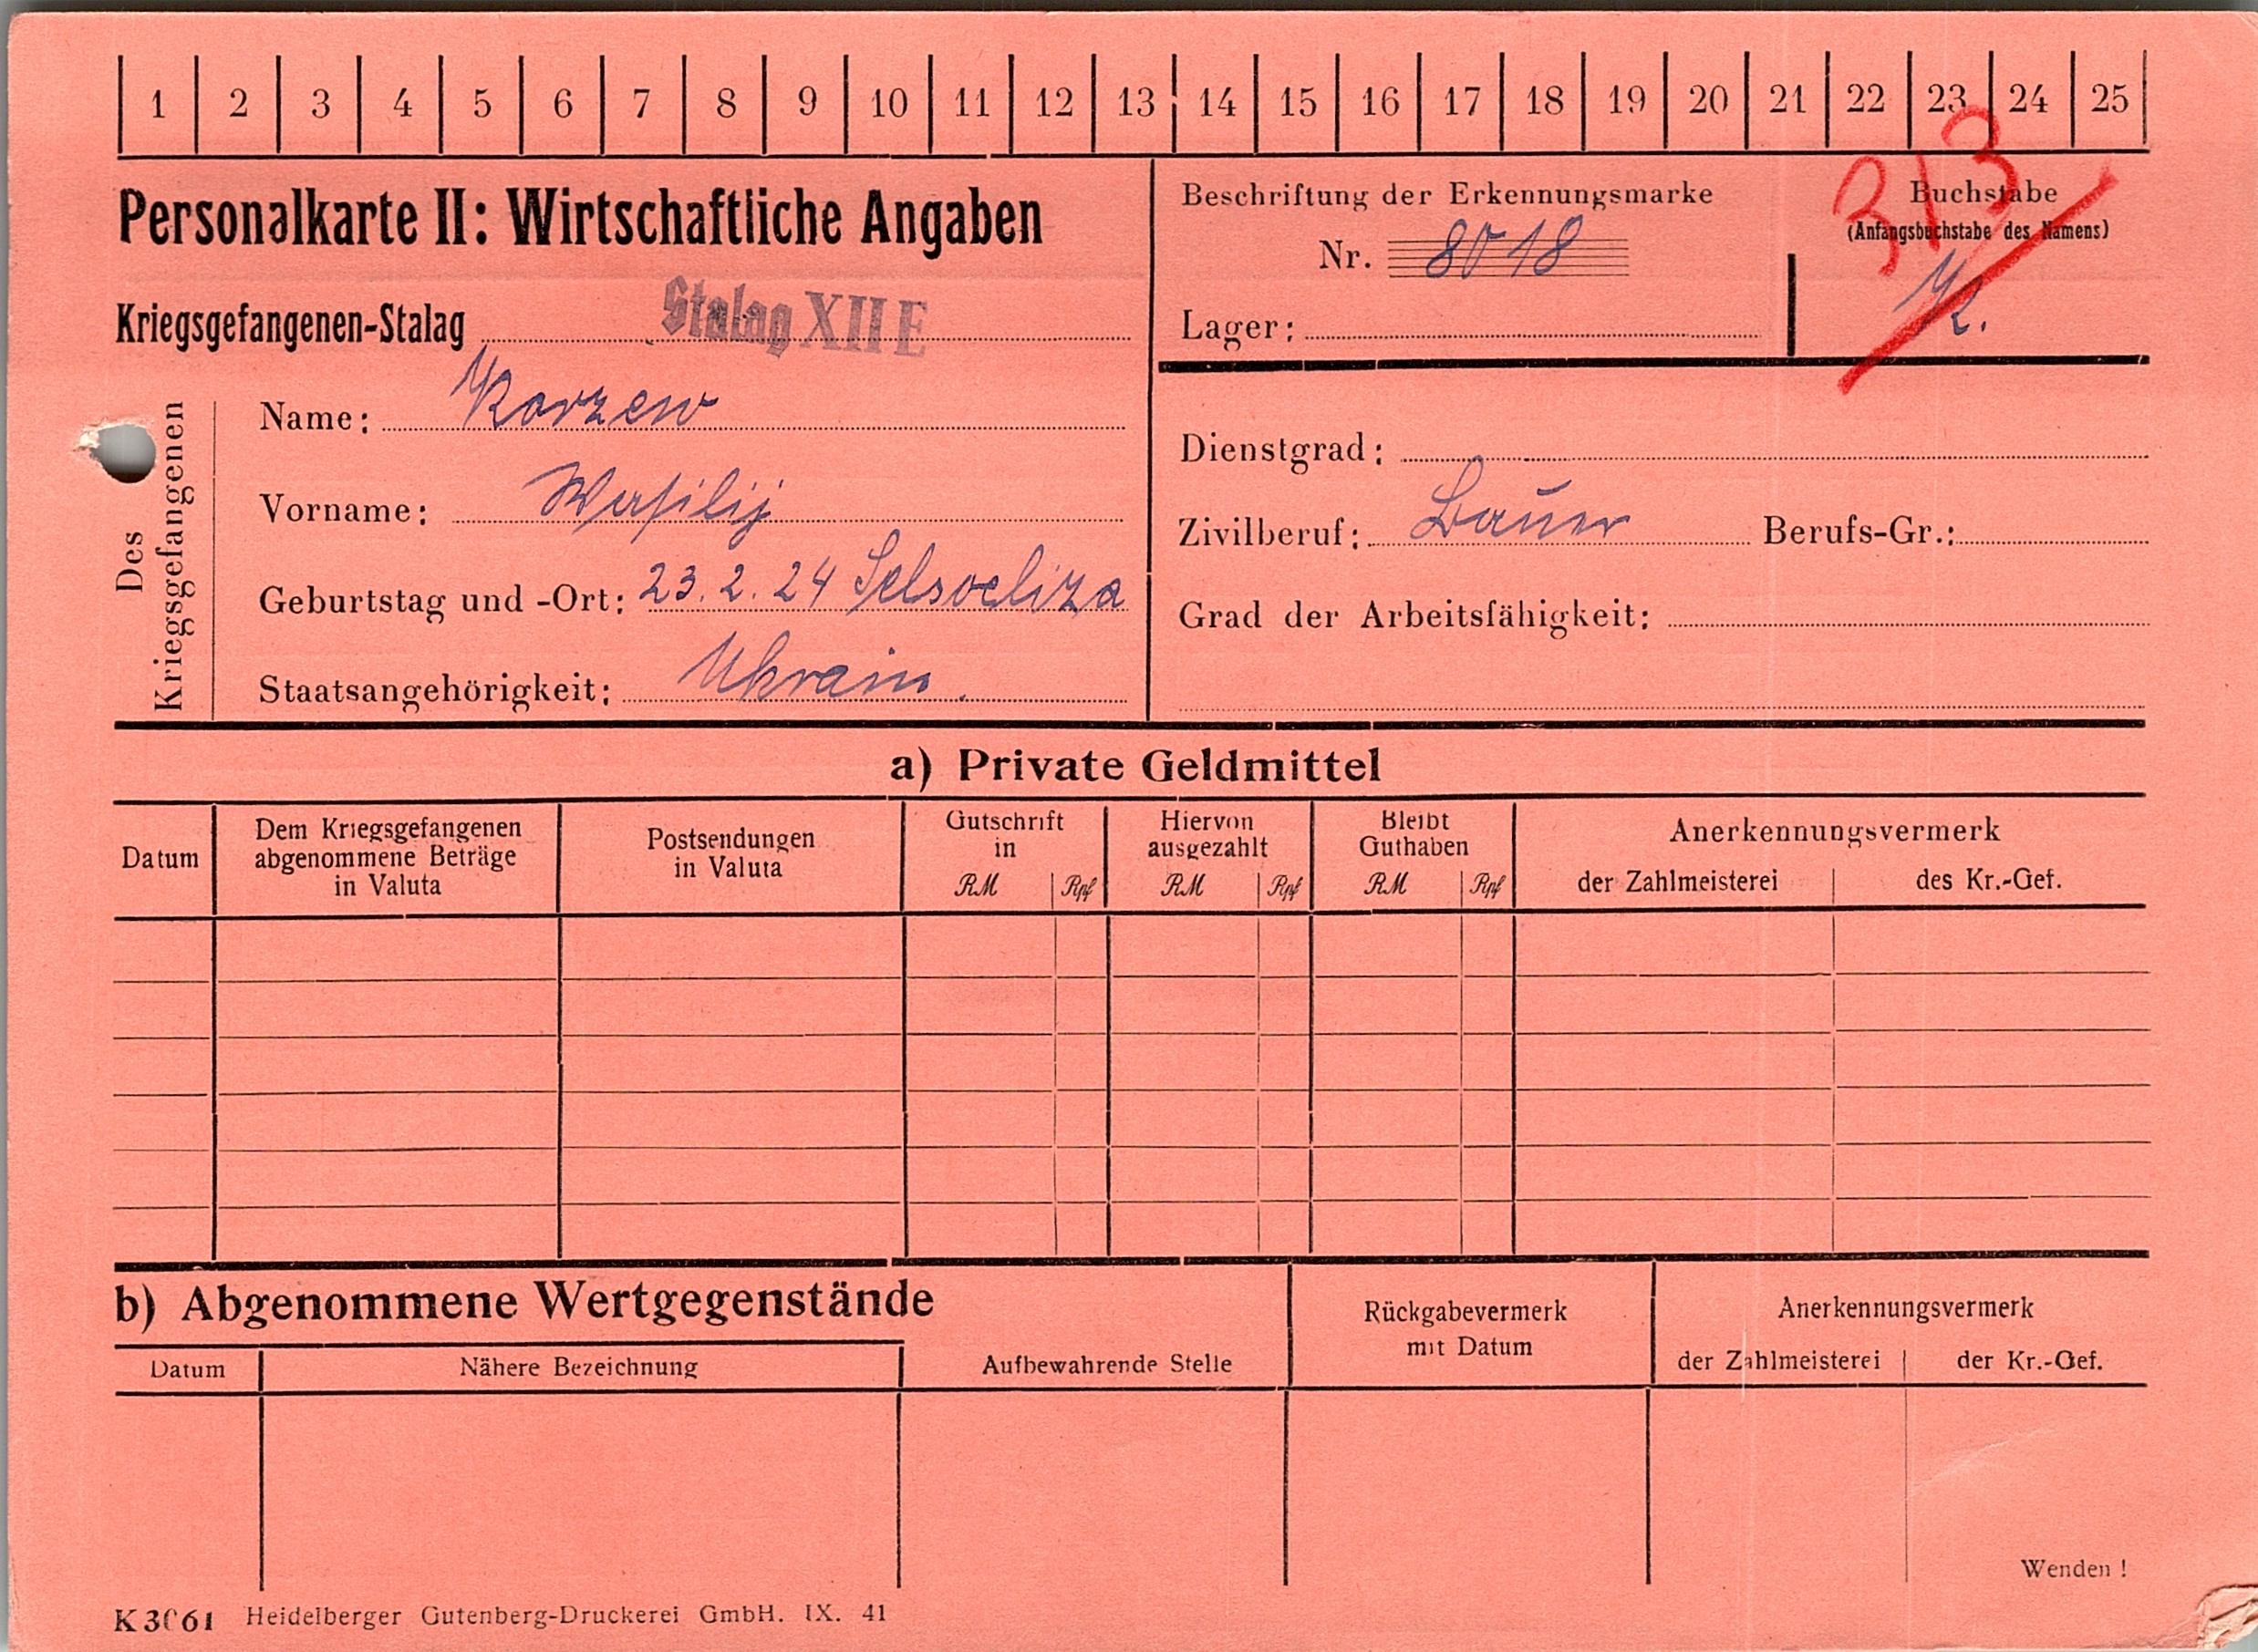 1 2 3 4 5 6 7 8 9 10 11 12 13 14 15 16 17 18 19 20 21 22 23 24 25
313
Personalkarte II: Wirtschaftliche Angaben
Kriegsgefangenen-Stalag Stalag XII E
Beschriftung der Erkennungsmarke
Nr. 8018
Lager:
Buchstabe
(Anfangsbuchstabe des Namens)
K.
Des Kriegsgefangenen
Name: Korzew
Vorname: Wasilij
Geburtstag und -Ort: 23.2.24 Selsoeliza
Staatsangehörigkeit: Ukrain.
Dienstgrad:
Zivilberuf: Bauer Berufs-Gr.:
Grad der Arbeitsfähigkeit:
a) Private Geldmittel
Datum
Dem Kriegsgefangenen
abgenommene Beträge
in Valuta
Postsendungen
in Valuta
Gutschrift
in
RM Rpf
Hiervon
ausgezahlt
RM Rpf
Bleibt
Guthaben
RM Rpf
Anerkennungsvermerk
der Zahlmeisterei des Kr.-Gef.
b) Abgenommene Wertgegenstände
Datum Nähere Bezeichnung Aufbewahrende Stelle
Rückgabevermerk
mit Datum
Anerkennungsvermerk
der Zahlmeisterei der Kr.-Gef.
Wenden!
K 3061 Heidelberger Gutenberg-Druckerei GmbH. IX. 41